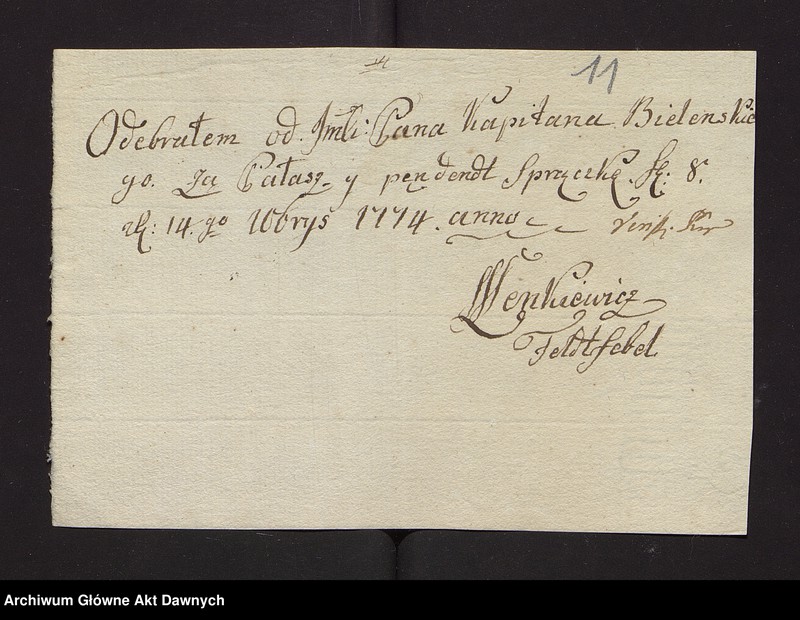 11
Odebrałem od. Jmći: Pana Kapitana Bielenskie
go. Za Pałasz y pendendt Sprzączkę. 8.
14. go 10brys 1774. anno
Wenkiewicz
Feldtfebel
Archiwum Główne Akt Dawnych